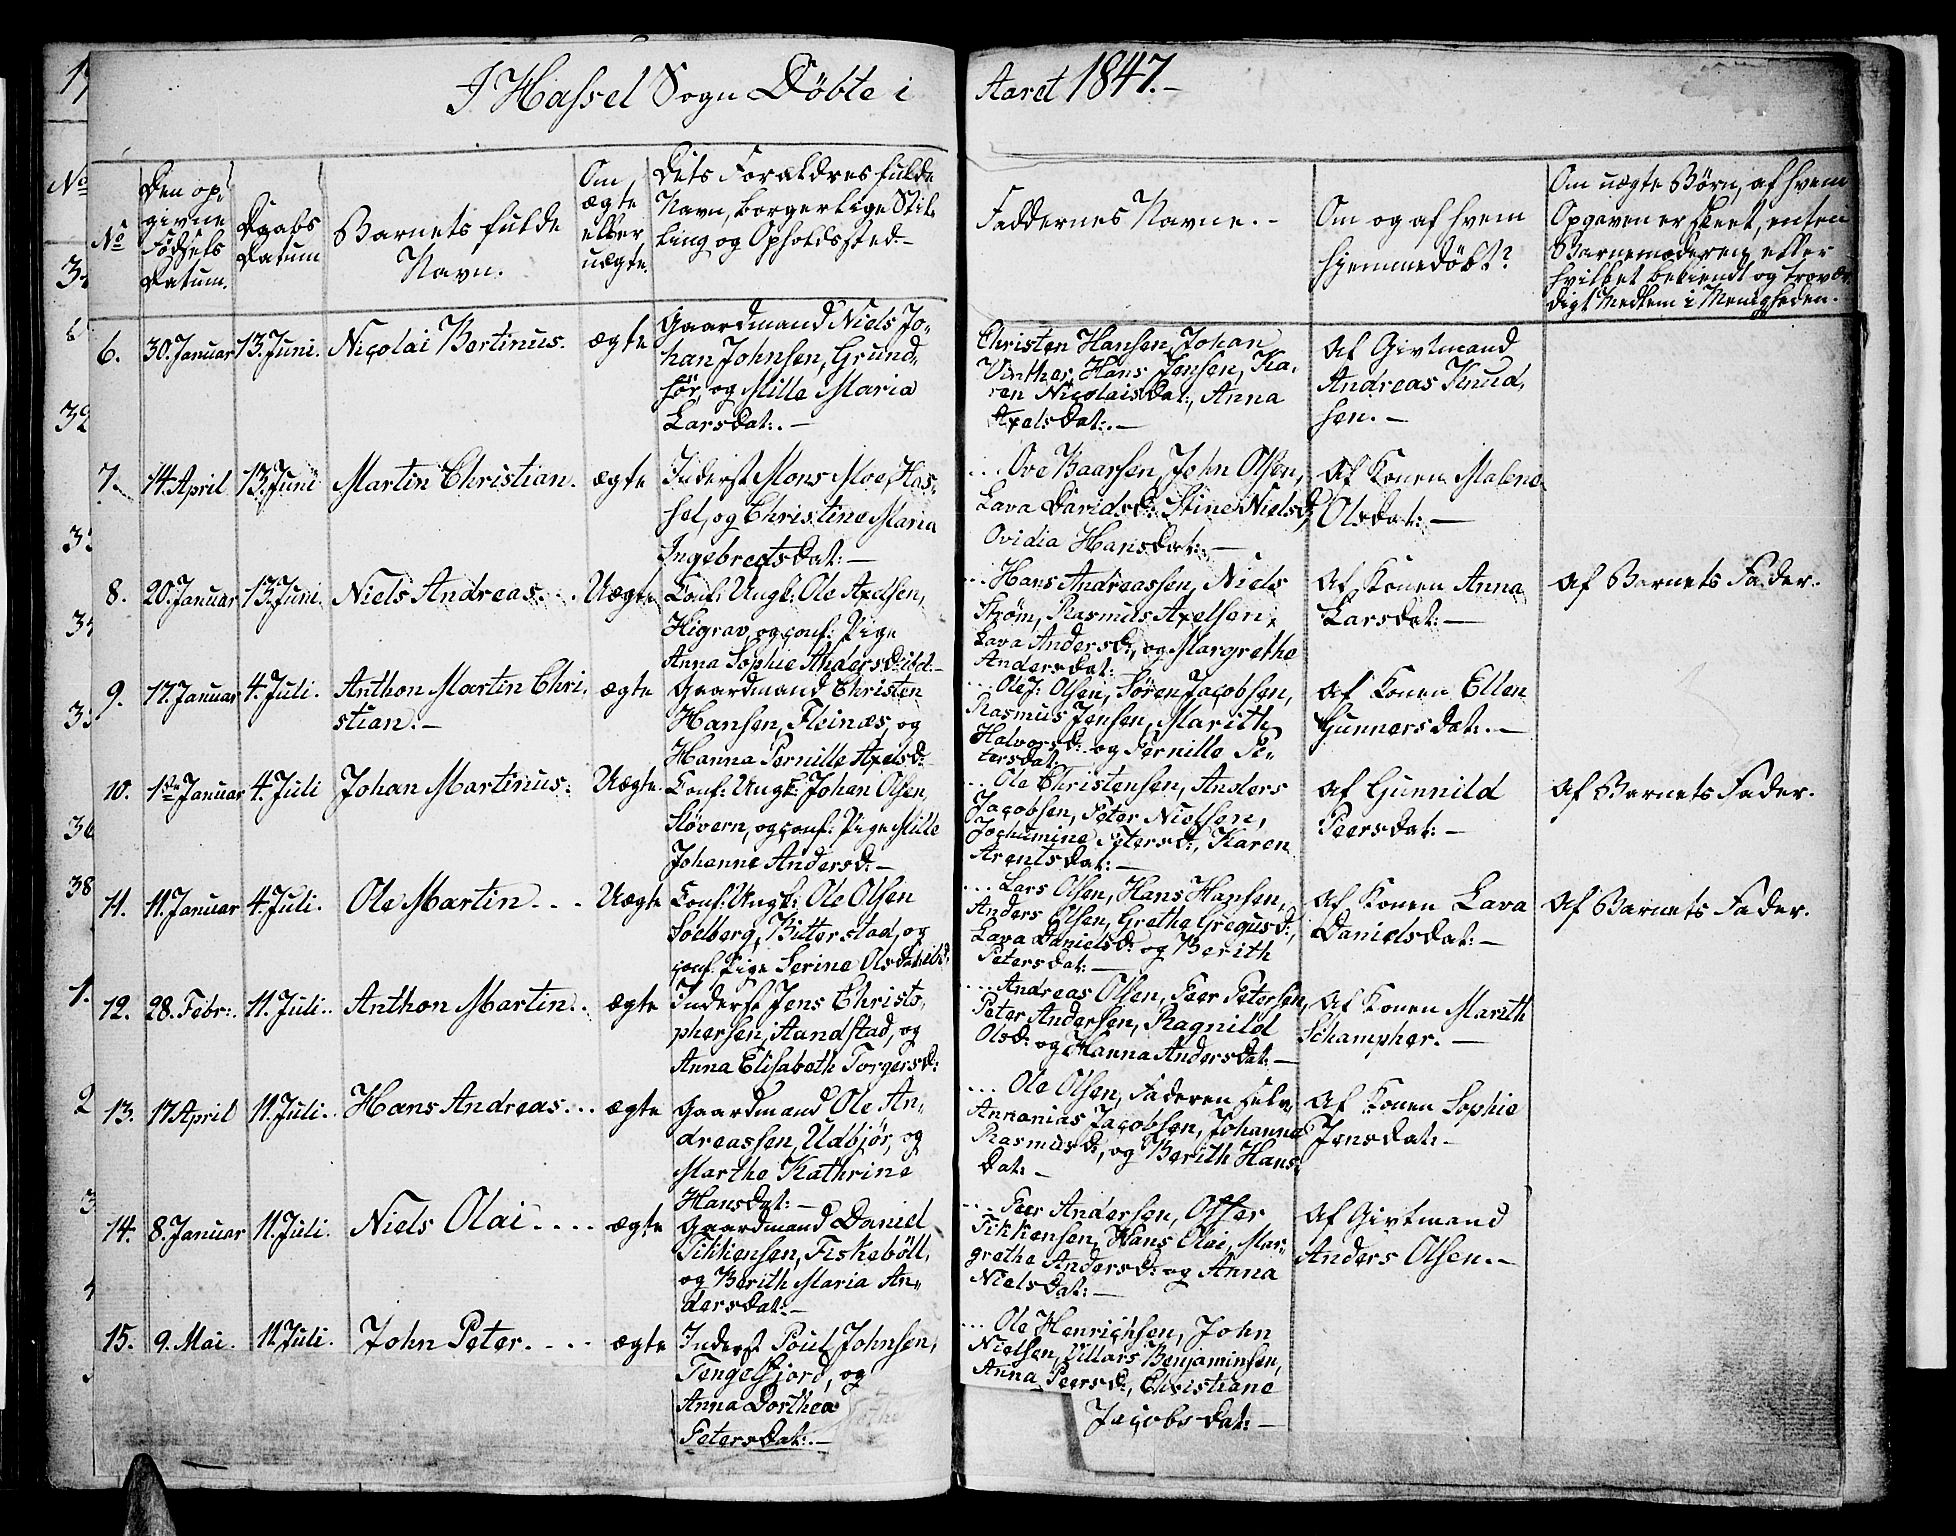 I Hassel Sogn Døbte i Aaret 1847.-
No
Den op-
givne
Fødsels
Datum.
Daabs
Datum
Barnets fulde
Navn.
Om
ægte
eller
uægte.
Dets Forældres fulde
Navn, borgerlige Stil-
ling og Opholdssted.-
Faddernes Navne.-
Om og af hvem
hjemmedöbt?
Om uægte Börn, af hvem
Opgaven er skeet, enten
Barnemoderen, eller
hvilket bekiendt og trovær
digt Medlem i Menigheden.
6. 30. Januar 13. Juni. Nicolai Bertinus. ægte
Gaardmand Niels Jo-
han Johnsen, Grund-
för, og Mille Maria
Larsdat:.-
Christen Hansen, Johan
Winther, Hans Jensen, Ka-
ren Nicolaisdat:, Anna
Axelsdat:.-
Af Givtmand
Andreas Knud-
sen.-
7. 14. April 13. Juni Martin Christian. ægte
Inderst Mons Moe, Has-
sel, og Christine Maria
Ingebregtsdat:-
... Ove Baarsen, John Olsen,
Lava Davidsd: Stine Nielsd:
Ovidia Hansdat:.-
Af Konen Malena
Olsdat:-
8. 20. Januar 13. Juni. Niels Andreas... Uægte
Conf: Ungk: Ole Axelsen,
Higrav, og conf: Pige
Anna Sophie Andersd: ibd:-
... Hans Andreassen, Niels
Strøm, Rasmus Axelsen,
Lava Andersd:, og Margrethe
Andersdat:
Af Konen Anna
Larsdat:-
Af Barnets Fader.
9. 17. Januar 4. Juli. Anthon Martin Chri-
stian.-
ægte
Gaardmand Christen
Hansen, Fleinæs, og
Hanna Pernille Axelsd:
... Ole J: Olsen, Sören Jacobsen,
Rasmus Jensen, Marith
Halvorsd: og Pernille Pe-
tersdat:
Af Konen Ellen
Gunnersdat:.-
10. 1ste Januar 4. Juli Johan Martinus: Uægte.
Conf: Ungk: Johan Olsen,
Slövern, og conf: Pige Mille
Johanne Andersd:-
... Ole Christensen, Anders
Jacobsen, Peter Nielsen,
Jochumine Petersd:, Karen
Arentsdat:-
Af Gunnild
Peersdat:-
Af Barnets Fader.
11. 11. Januar 4. Juli. Ole Martin... Uægte
Conf: Ungk: Ole Olsen
Solberg, Bitterstad, og
conf: Pige Serine Olsdat: ibd:
... Lars Olsen, Hans Hansen,
Anders Olsen, Grethe Gregusd:,
Lava Danielsd: og Berith
Petersdat:-
Af Konen Lava
Danielsdat:-
Af Barnets Fader.
12. 28. Febr:. 11. Juli. Anthon Martin.. ægte
Inderst Jens Christo-
phersen, Sandstad, og
Anna Elisabeth Torgersd:
... Andreas Olsen, Peer Petersen,
Peter Andersen, Ragnild
Olsd: og Hanna Andersdat:-
Af Konen Marith
Schampher.-
13. 17 April 11. Juli. Hans Andreas... ægte
Gaardmand Ole An-
dreassen, Udbjör, og
Marthe Kathrine
Hansdat:-
... Ole Olsen, Faderen selv,
Annanias Jacobsen, Johanna
Rasmusd:, og Berith Hans-
dat:-
Af Konen Sophie
Jensdat:-
14. 8. Januar 11. Juli. Niels Olai.... ægte
Gaardmand Daniel
Fikkensen, Fiskeböll,
og Berith Maria An-
dersdat:-
... Peer Andersen, Offer
Fikkensen, Hans Olai, Mar-
grethe Andersd: og Anna
Nielsdat:-
Af Givtmand
Anders Olsen.-
15. 9. Mai. 11. Juli. John Peter.... ægte
Inderst Poul Johnsen,
Tengelfjord, og
Anna Dorthea
Petersdat:.-
... Ole Henrichsen, John
Nielsen, Villars Benjaminsen,
Anna Peersd:, Christiane
Jacobsdat:-